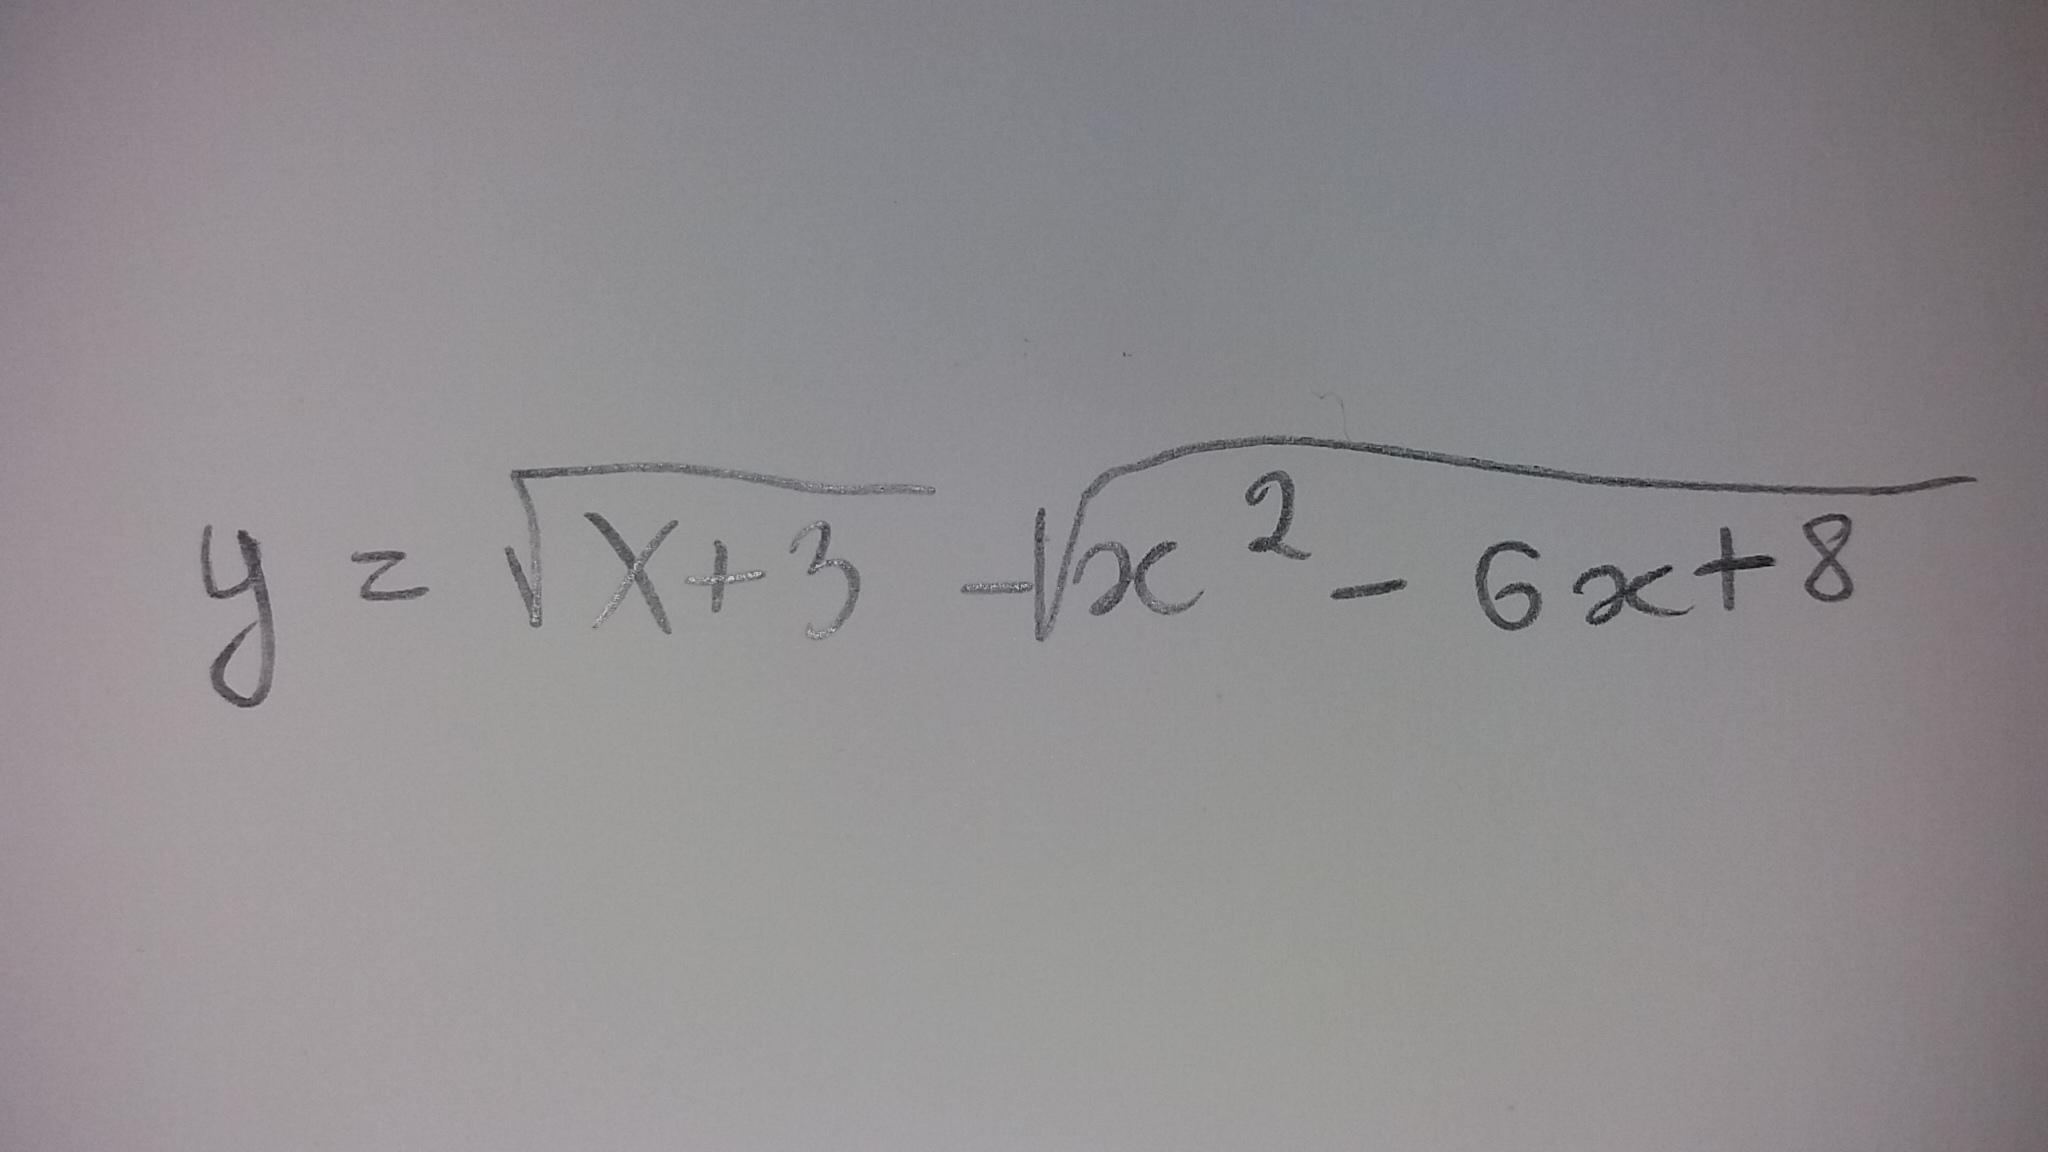 y = √(x+3) - √(x² - 6x+8)